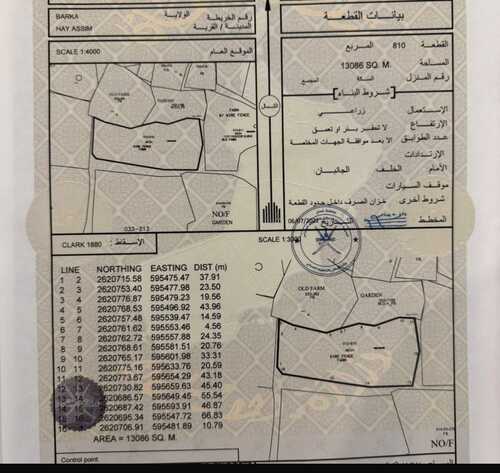 بيانات القطعة
القطعة 810 المربع
المساحة 13086 SQ. M.
رقم المنزل السكة المجمع
شروط البناء
الإستعمال زراعي
الإرتفاع لا تحفر بئر او تعمق
عدد الطوابق الا بعد موافقة الجهات المختصة
الإرتدادات
الأمام الخلف الجانبان
موقف السيارات
شروط أخرى خزان الصرف داخل حدود القطعة
المخطط
الشمال
BARKA الولاية
رقم الخريطة
HAY ASSIM المدينة / القرية
SCALE 1:4000 الموقع العام
OLD FARM
FARM
W/ WIRE FENCE
WIRE FENCE
FARM
NO/F
GARDEN
CLARK 1880 الإسقاط:
SCALE 1:3000
LINE NORTHING EASTING DIST (m)
1 2 2620715.58 595475.47 37.91
2 3 2620753.40 595477.98 23.50
3 4 2620776.87 595479.23 19.56
4 5 2620768.53 595496.92 43.96
5 6 2620757.48 595539.47 14.59
6 7 2620761.62 595553.46 4.56
7 8 2620762.72 595557.88 24.35
8 9 2620768.61 595581.51 20.76
9 10 2620765.17 595601.98 33.31
10 11 2620775.16 595633.76 20.59
11 12 2620773.67 595654.29 43.18
12 13 2620730.82 595659.63 45.40
13 14 2620686.57 595649.45 55.54
14 15 2620687.42 595693.91 46.87
15 16 2620695.34 595547.72 66.83
16 2620706.91 595481.89 10.79
AREA = 13086 SQ. M.
OLD FARM
GARDEN
WIRE FENCE
FARM
NO/F
Control point